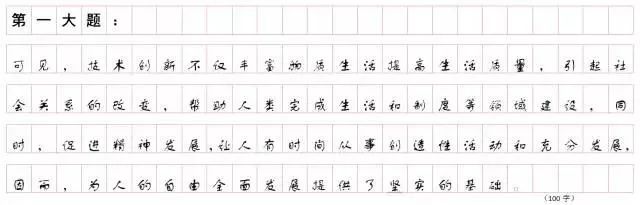 第一大题：
可见，技术创新不仅丰富物质生活提高生活质量，引起社
会关系的改变，帮助人类完成生活和制度等领域建设，同
时，促进精神发展，让人有时间从事创造性活动和充分发展，
因而，为人的自由全面发展提供了坚实的基础。
（100字）